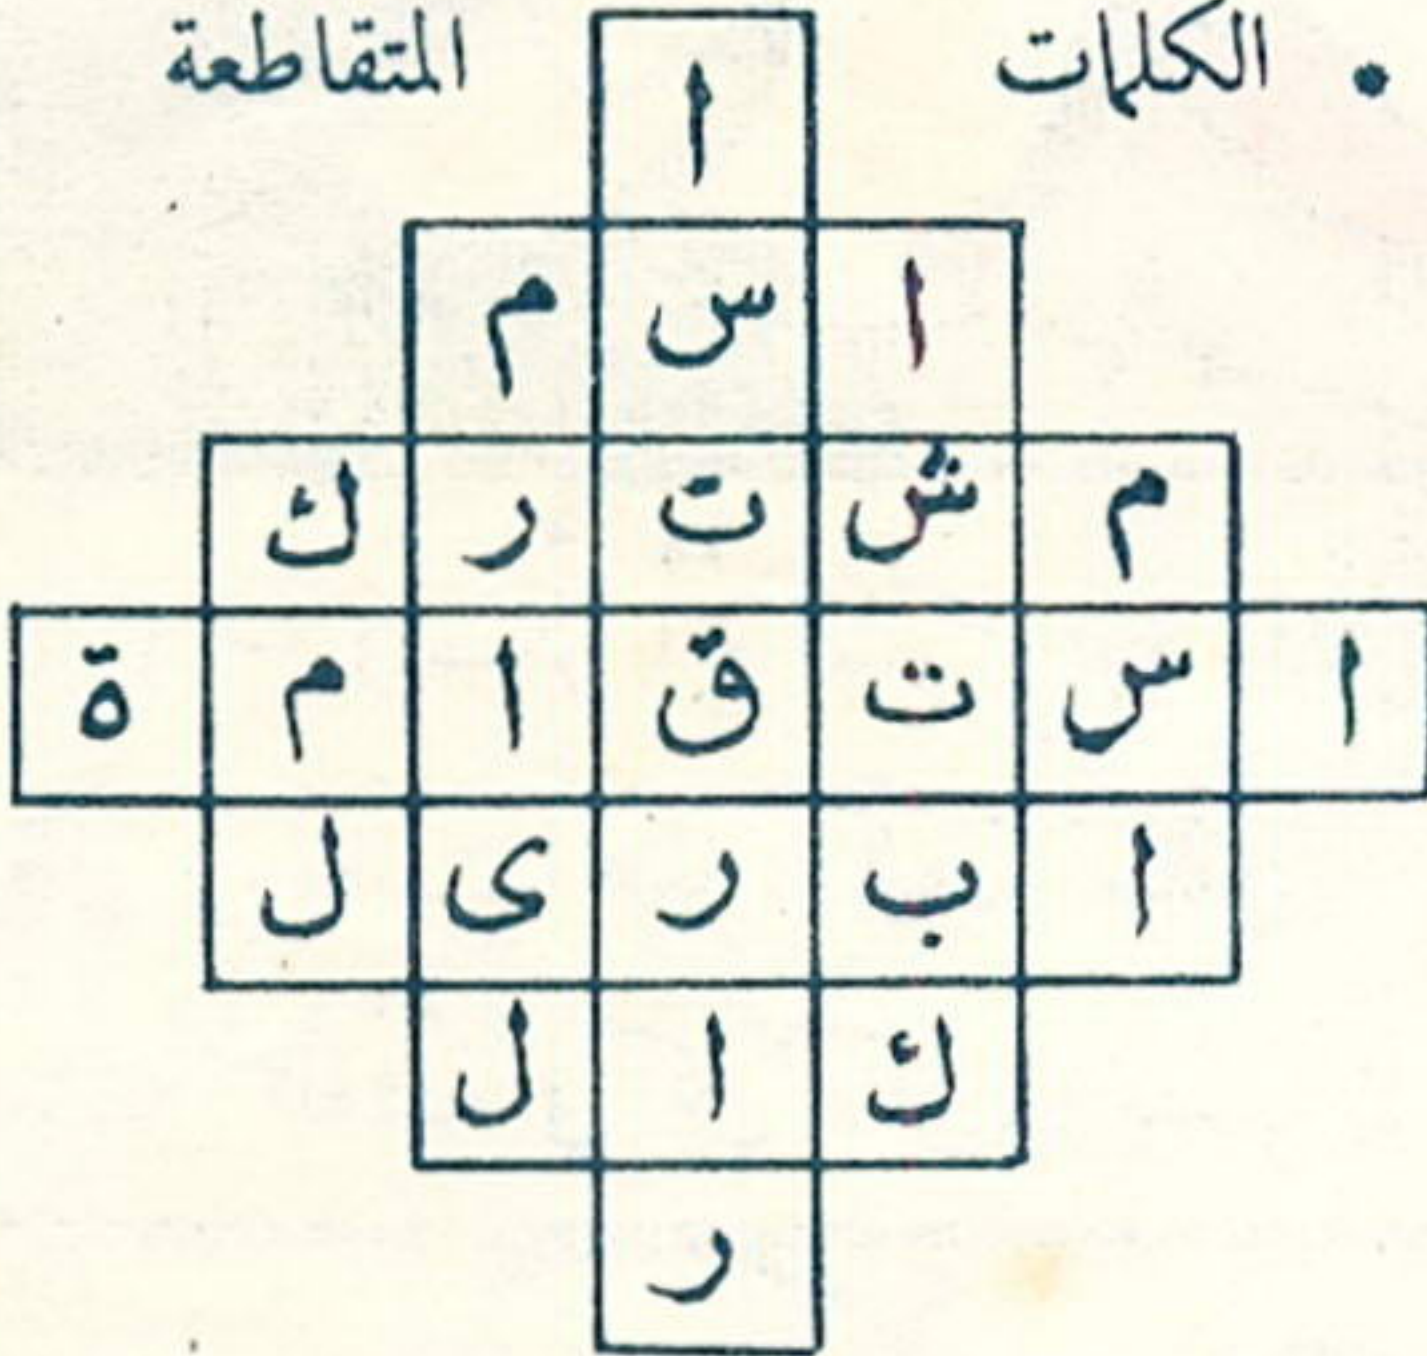 • الكلمات المتقاطعة
ا
ا س م
م ش ت ر ك
ا س ت ق ا م ة
ا ب ر ى ل
ك ا ل
ر